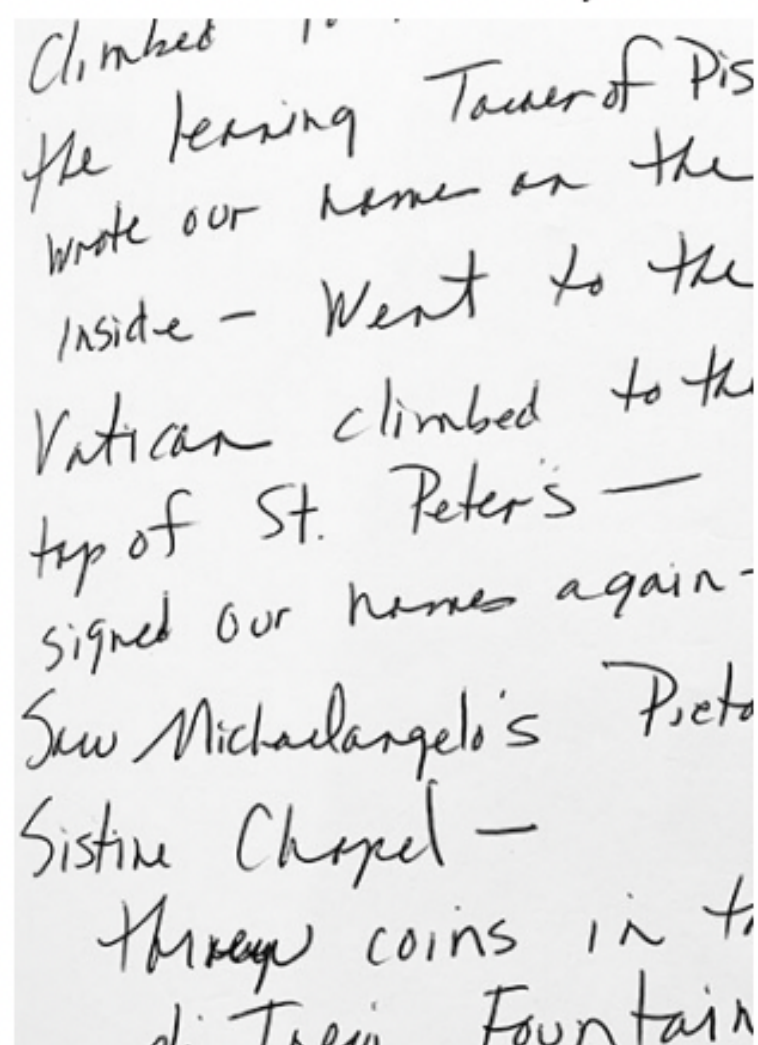 Climbed
the leaning Tower of Pis
wrote our names on the
inside - Went to the
Vatican climbed to the
top of St. Peter's —
signed our names again -
Saw Michaelangelo's Pieta
Sistine Chapel —
threw coins in
di Trevi Fountain